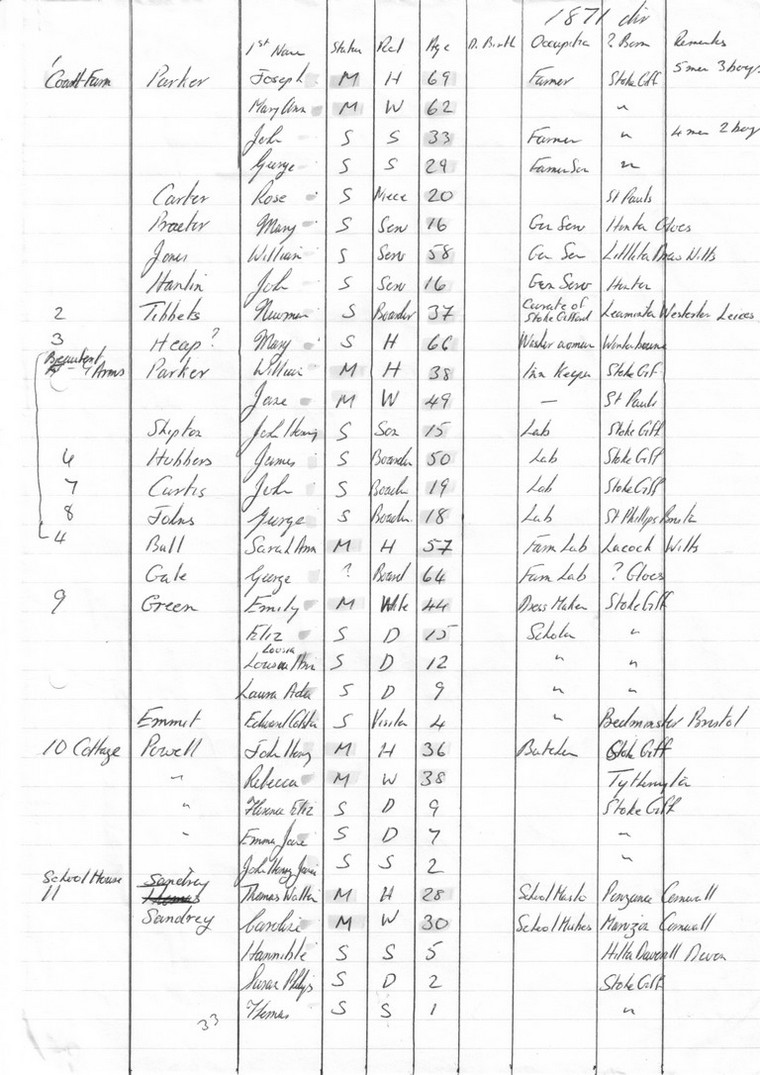 1871 div
1st Name Status Rel Age D. Birth Occupation ? Born Remarks
Court Farm Parker Joseph M H 69 Farmer Stoke Giff 5 men 3 boys
Mary Ann M W 62 "
John S S 33 Farmer " 4 men 2 boys
George S S 29 Farmer Son "
Carter Rose S Niece 20 St Pauls
Procter Mary S Serv 16 Gen Serv Glocs
Jones William S Serv 58 Gen Ser Wilts
Hanlin John S Serv 16 Gen Serv
2 Tibbets Newman S Boarder 37 Curate of Stoke Gifford
3 Heap ? Mary S H 66 Washer woman Winterbourne
Beaufort Arms Parker William M H 38 Inn Keeper Stoke Gif
Jane M W 49 — St Pauls
Shipton John Henry S Son 15 Lab Stoke Giff
6 James S Boarder 50 Lab Stoke Giff
7 Curtis John S Boarder 19 Lab Stoke Giff
8 Johns George S Boarder 18 Lab St Phillips
4 Bull Sarah Ann M H 57 Farm Lab Lacock Wilts
Gale George ? Board 64 Farm Lab ? Glocs
9 Green Emily M Wife 44 Dress Maker Stoke Giff
Eliz S D 15 Scholar "
Louisa
Ann S D 12 " "
Laura Ada S D 9 " "
Emmet Edward S Visitor 4 " Bedminster Bristol
10 Cottage Powell John Henry M H 36 Butcher Stoke Giff
" Rebecca M W 38 Tytherington
" Florence Eliz S D 9 Stoke Giff
" Emma Jane S D 7 "
John Henry S S 2 "
School House Sandrey
11 Thomas Thomas M H 28 School Master Penzance Cornwall
Sandrey Caroline M W 30 School Mistress Cornwall
Hannible S S 5 Devon
S D 2 Stoke Giff
Thomas S S 1 "
33